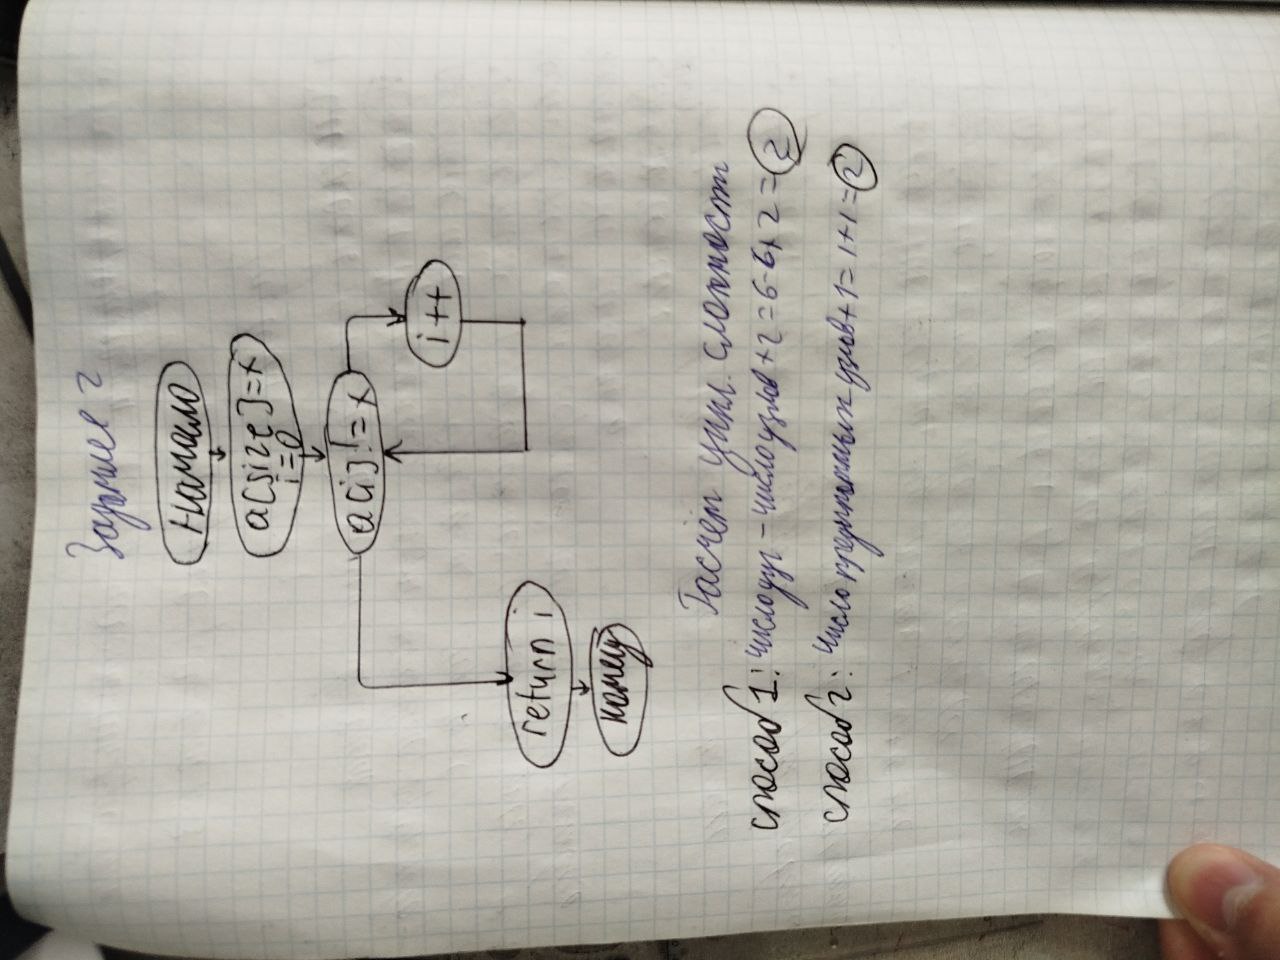 Задание 2
Начало
a[size]=x
i=0
a[i]!=x
i++
return i
конец
Расчёт цикл. сложности
способ 1: число дуг - число узлов + 2 = 6-6+2 = 2
способ 2: число предикатных узлов + 1 = 1+1 = 2